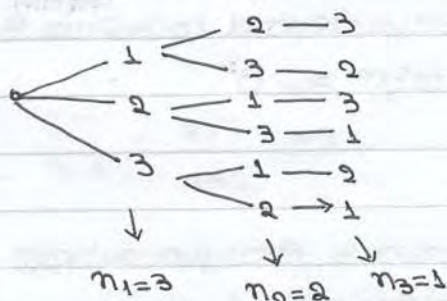 2 3
1
3 2
2 1 3
3 1
3
1 2
2 1
n₁=3 n₂=2 n₃=1